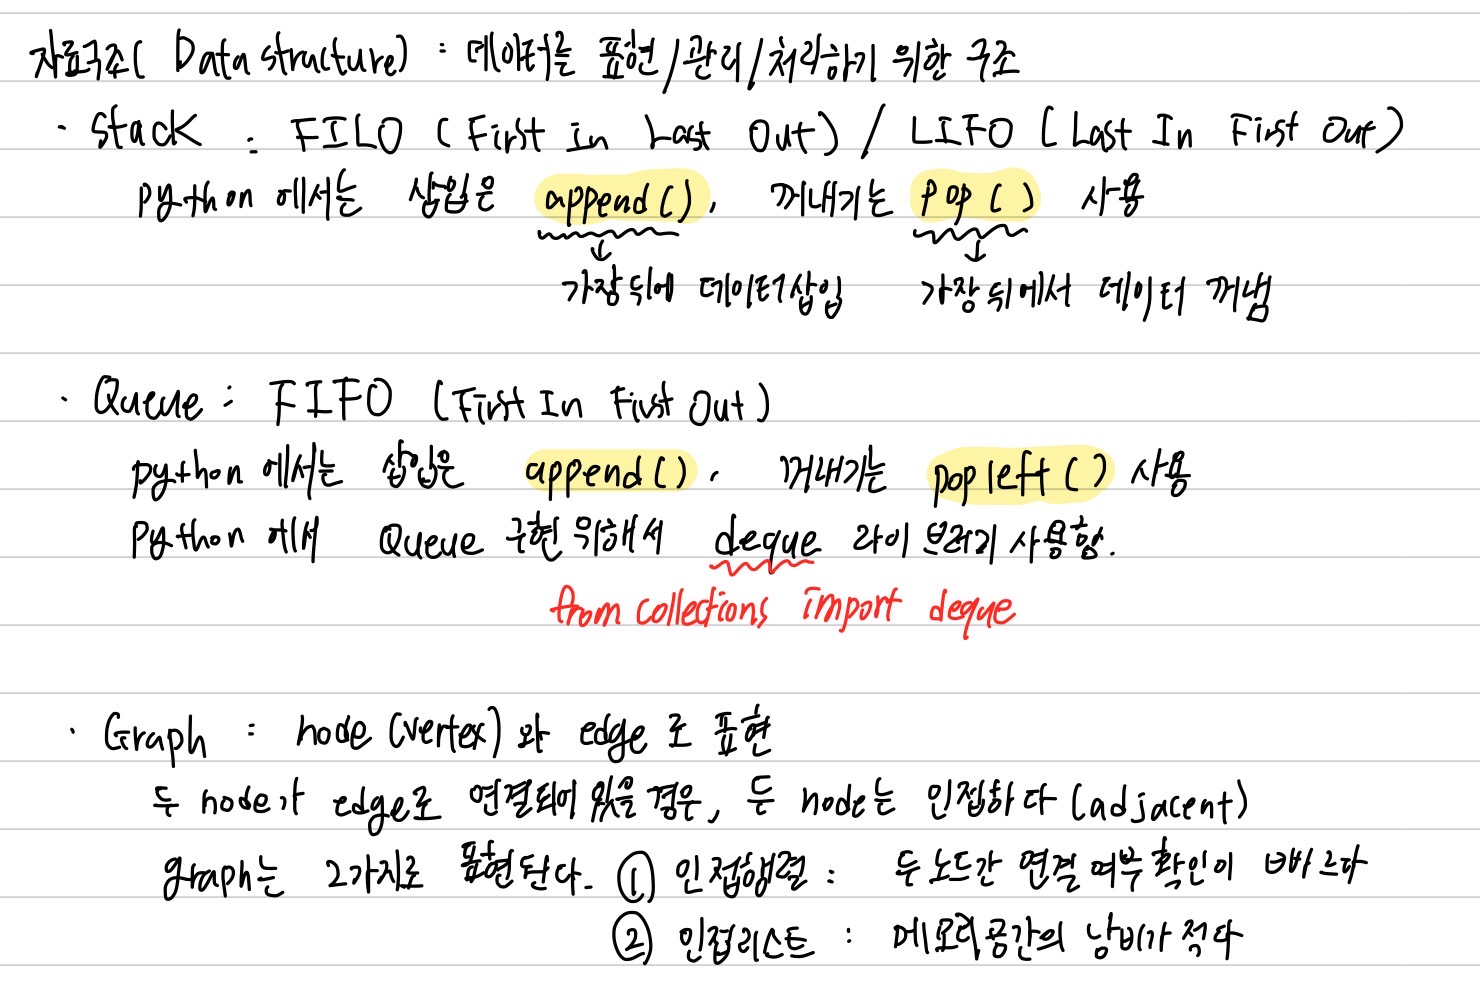 자료구조( Data structure) : 데이터를 표현/관리/처리하기 위한 구조
· stack : FILO (First in Last Out) / LIFO (Last In First Out)
python 에서는 삽입은 append(), 꺼내기는 pop() 사용
가장 뒤에 데이터 삽입 가장 뒤에서 데이터 꺼냄
· Queue : FIFO (First In First Out)
python 에서는 삽입은 append(), 꺼내기는 popleft() 사용
Python 에서 Queue 구현 위해서 deque 라이브러리 사용함.
from collections import deque
· Graph : node (vertex) 와 edge 로 표현
두 node가 edge로 연결되어 있을 경우, 두 node는 인접하다 (adjacent)
graph는 2가지로 표현된다. ① 인접행렬 : 두 노드간 연결 여부 확인이 빠르다
② 인접리스트 : 메모리 공간의 낭비가 적다